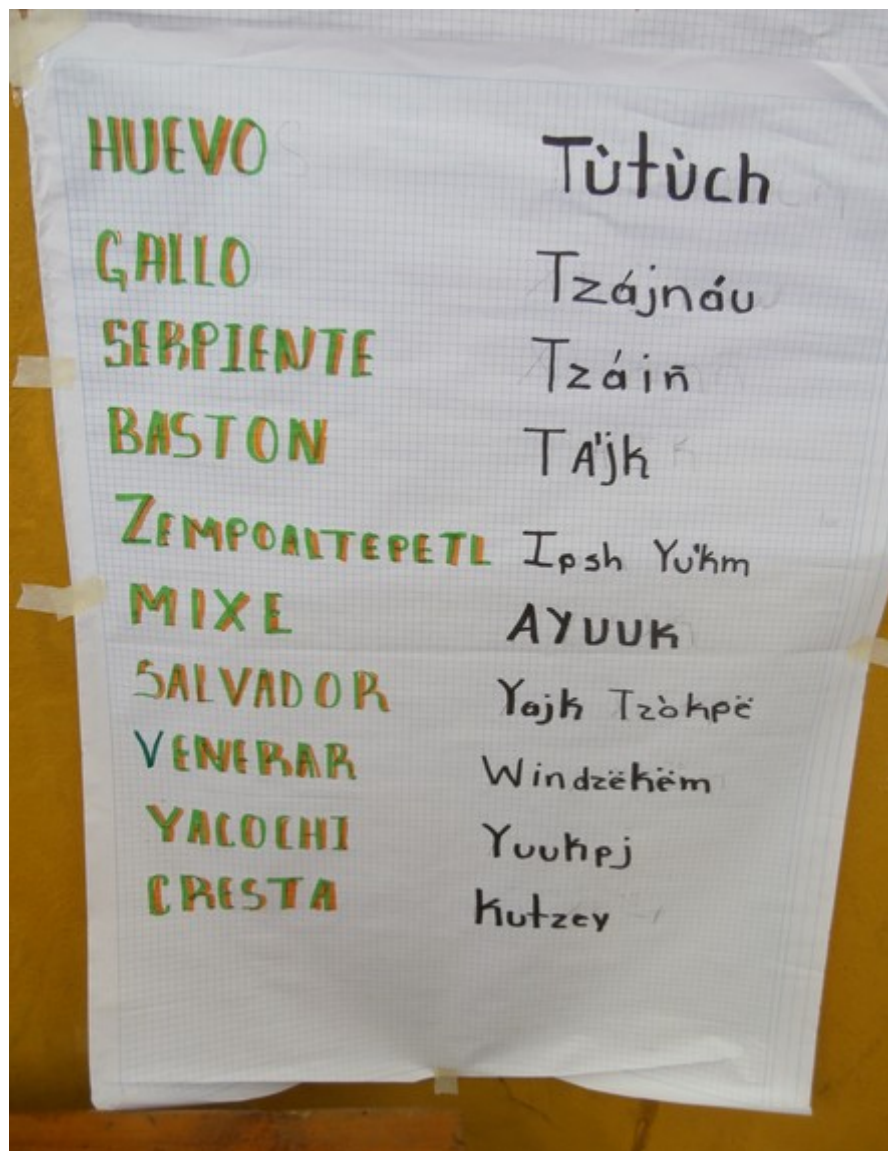 HUEVO Tùtùch
GALLO Tzájnáu
SERPIENTE Tzáiñ
BASTON TA'jk
ZEMPOALTEPETL Ipsh Yu'km
MIXE AYUUK
SALVADOR Yajk Tzòkpë
VENERAR Windzëkëm
YACOCHI Yuukpj
CRESTA Kutzey